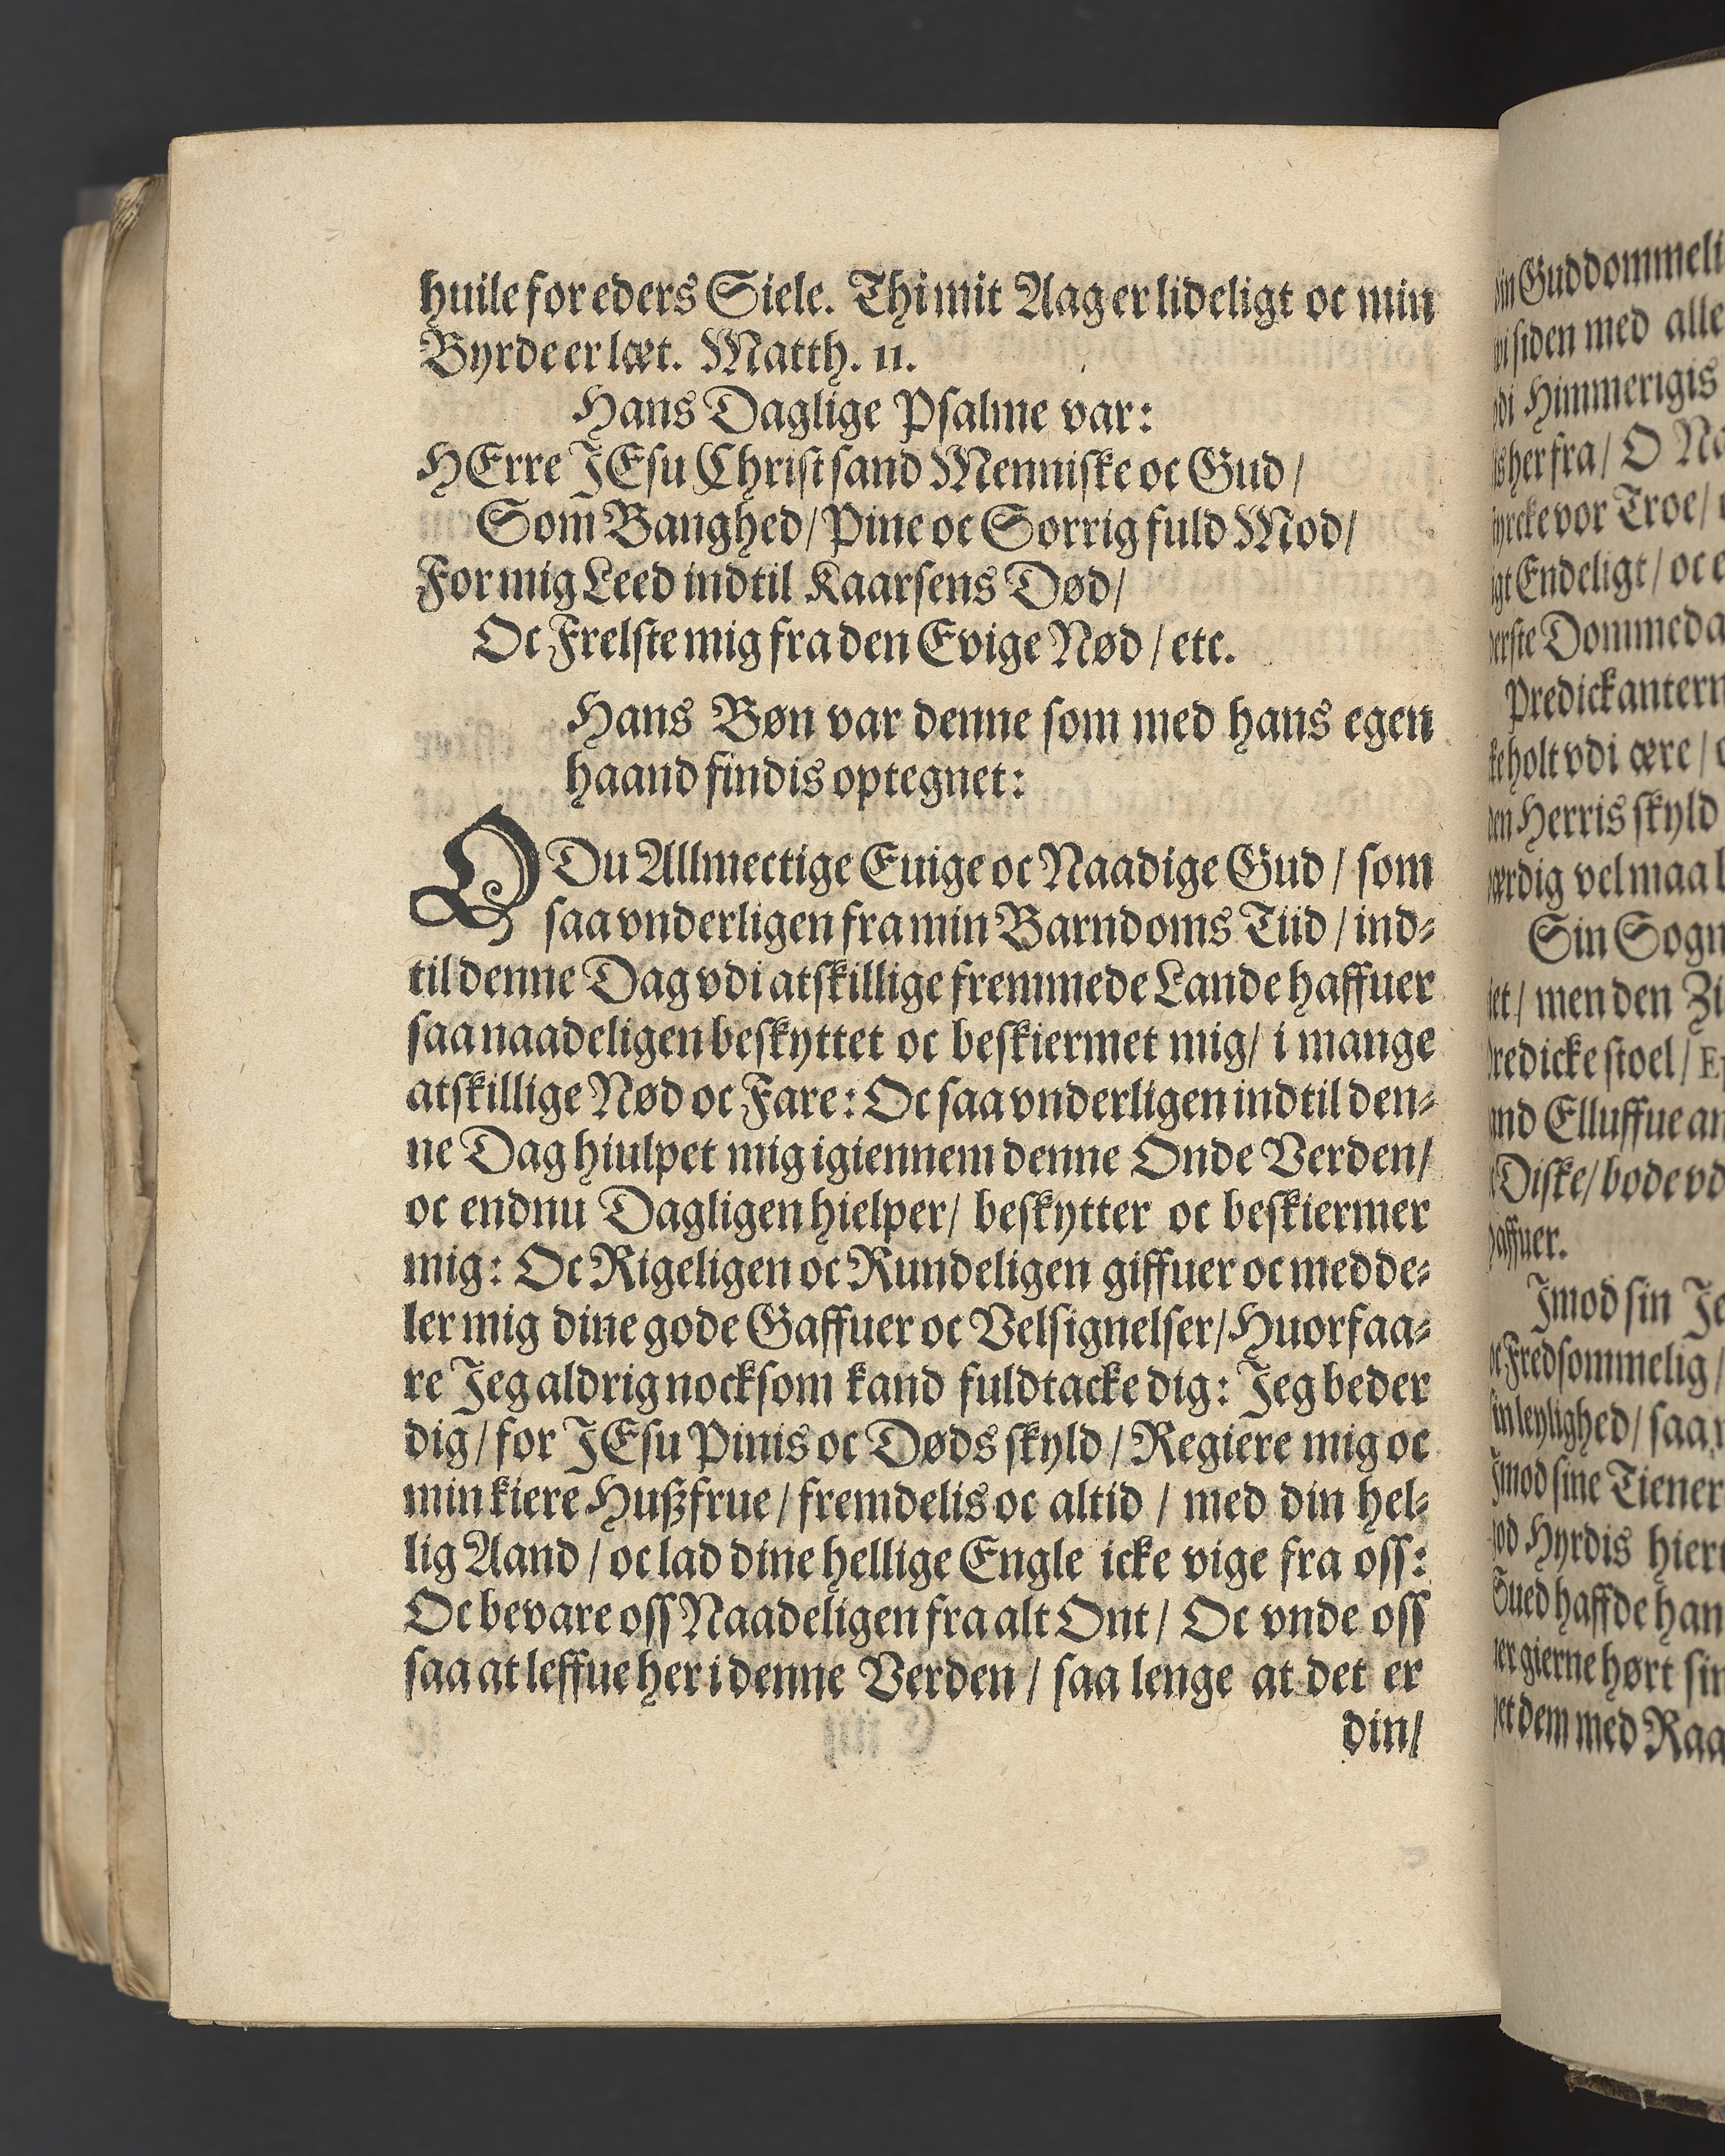 huile for eders Siele. Thi mit Aag er lideligt oc min
Byrde er læt. Matth. 11.
Hans Daglige Psalme var:
HErre JEsu Christ sand Menniske oc Gud /
Som Banghed / Pine oc Sorrig fuld Mod /
For mig Leed indtil Kaarsens Død /
Oc Frelste mig fra den Evige Nød / etc.
Hans Bøn var denne som med hans egen
haand findis optegnet:
O Du Allmectige Euige oc Naadige Gud / som
saa vnderligen fra min Barndoms Tiid / ind⸗
til denne Dag vdi atskillige fremmede Lande haffuer
saa naadeligen beskyttet oc beskiermet mig / i mange
atskillige Nød oc Fare: Oc saa vnderligen indtil den⸗
ne Dag hiulpet mig igiennem denne Onde Verden /
oc endnu Dagligen hielper / beskytter oc beskiermer
mig: Oc Rigeligen oc Rundeligen giffuer oc medde⸗
ler mig dine gode Gaffuer oc Velsignelser / Huorfaa⸗
re Jeg aldrig nocksom kand fuldtacke dig: Jeg beder
dig / for JEsu Pinis oc Døds skyld / Regiere mig oc
min kiere Hußfrue / fremdelis oc altid / med din hel⸗
lig Aand / oc lad dine hellige Engle icke vige fra oss:
Oc bevare oss Naadeligen fra alt Ont / Oc vnde oss
saa at leffue her i denne Verden / saa lenge at det er
din /
Guddommeli
siden med alle
Himmerigis
her fra / O Na
vor Troe /
Endeligt / oc
Dommeda
Predickantern
holt vdi ære /
Herris skyld
vel maa
Sin Sogn
men den
stoel /
Elluffue
Diske / bode vd
Jmod sin Je
Fredsommelig /
saa
sine Tiener
Hyrdis hiert
haffde han
gierne hørt sin
dem med Raa